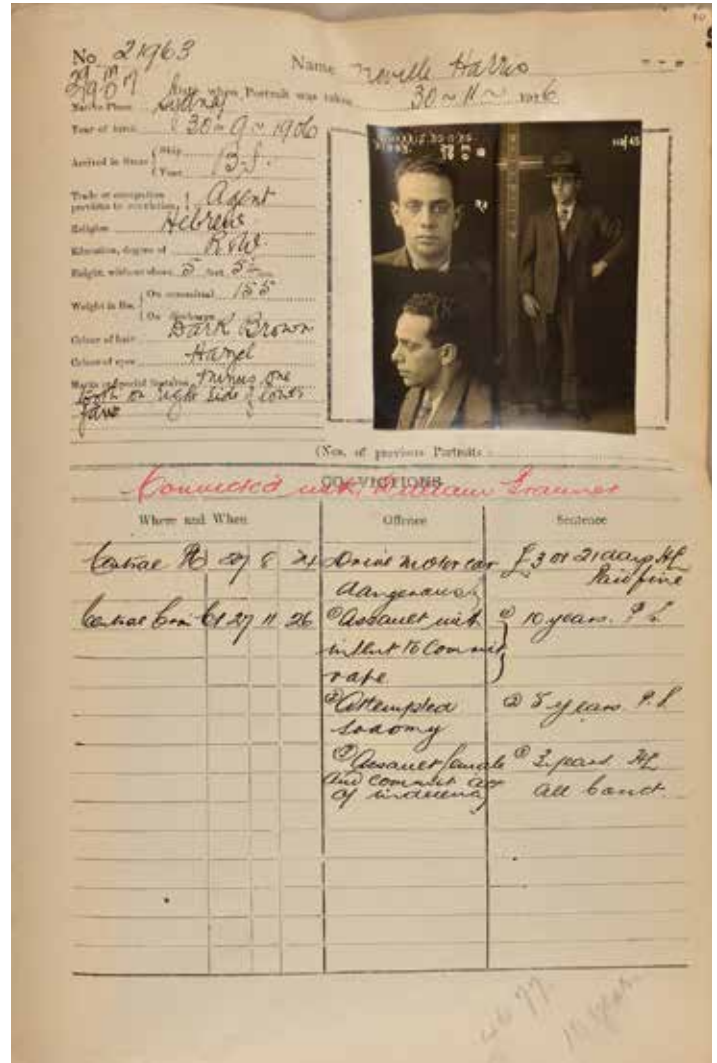 No 21963
Name Neville Harris
Date when Portrait was taken 30~11~1926
Native Place Sydney
Year of birth 30~9~1906
Arrived in State { Ship
{ Year B.S.
Trade or occupation
previous to conviction } Agent
Religion Hebrew
Education, degree of R&W
Height, without shoes 5 feet 5½
Weight in lbs. { On committal 155
{ On discharge
Colour of hair Dark Brown
Colour of eyes Hazel
Marks or special features Minus one
tooth on right side of lower
jaw
(Nos. of previous Portraits
CONVICTIONS
Connected with William
Where and When Offence Sentence
Central 27 8 24 Drive motor car £3 or 21 days HL
dangerously Paid fine
Central Crim Ct 27 11 26 ① Assault with ① 10 years. P.S
intent to Commit
rape
② Attempted ② 5 years P.S
sodomy
③ Assault female ③ 2 years HL
and commit act all conct.
of indecency